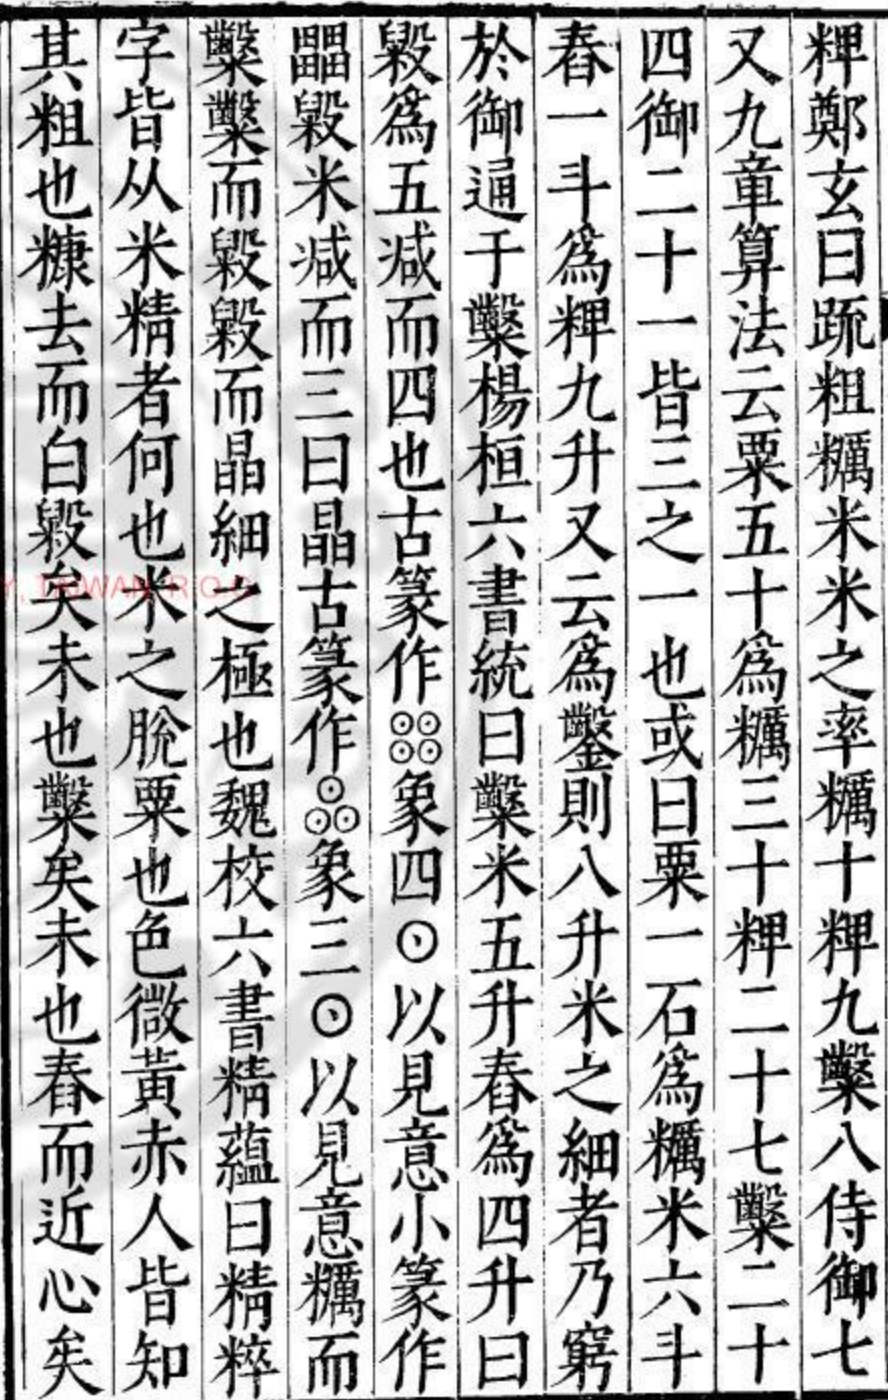 粺鄭玄曰䟽粗糲米米之率糲十粺九糳八侍御七
又九章算法云粟五十爲糲三十粺二十七糳二十
四御二十一皆三之一也或曰粟一石爲糲米六斗
舂一斗爲粺九升又云爲鑿則八升米之細者乃窮
於御通于糳楊桓六書統曰糳米五升舂爲四升曰
毇爲五减而四也古篆作象四⊙以見意小篆作
畾毇米减而三曰晶古篆作象三⊙以見意糲而
糳糳而毇毇而晶細之極也魏校六書精蘊曰精粹
字皆从米精者何也米之脫粟也色微黃赤人皆知
其粗也糠去而白毇矣未也糳矣未也舂而近心矣